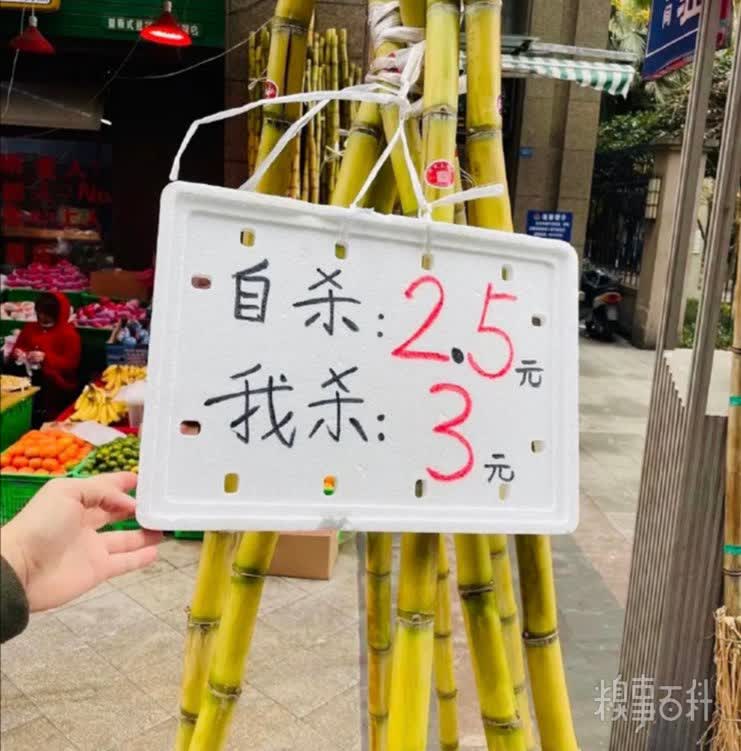 自杀:2.5元
我杀:3元
糗事百科